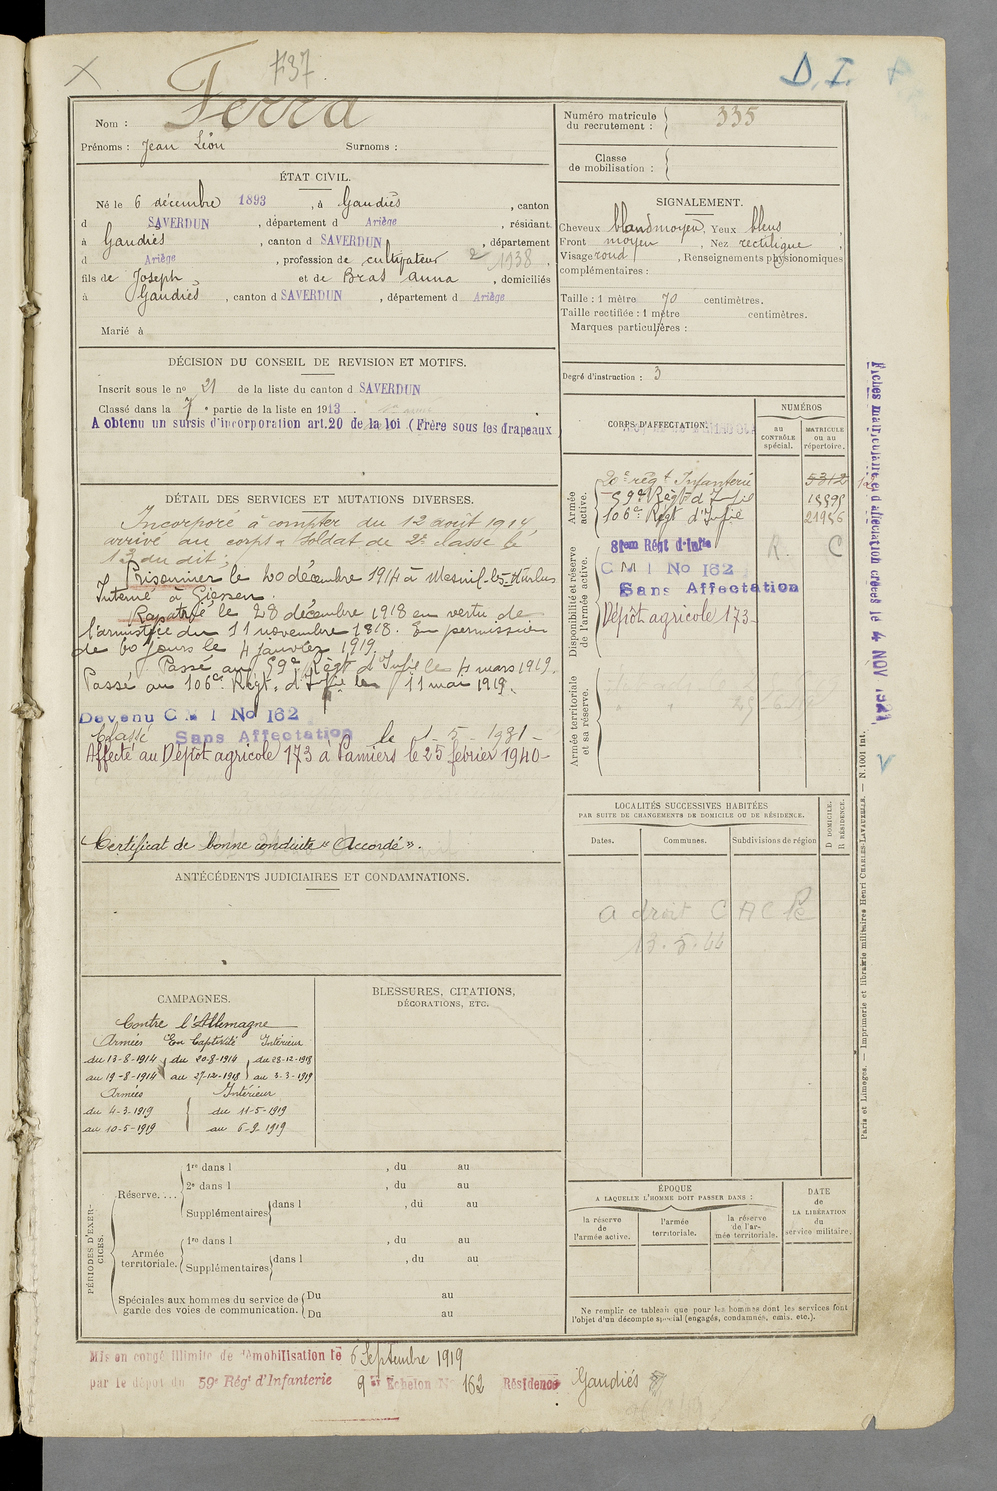 737
D. I.
Nom : Ferra
Prénoms : Jean Léon Surnoms :
ÉTAT CIVIL.
Né le 6 décembre 1893, à Gaudiès, canton
d SAVERDUN, département d Ariège, résidant
à Gaudiès, canton d SAVERDUN, département
d Ariège, profession de cultivateur 2 1938.
fils de Joseph et de Bras Anna, domiciliés
à Gaudiès, canton d SAVERDUN, département d Ariège
Marié à
DÉCISION DU CONSEIL DE REVISION ET MOTIFS.
Inscrit sous le no 21 de la liste du canton d SAVERDUN
Classé dans la 7e partie de la liste en 1913.
A obtenu un sursis d'incorporation art.20 de la loi (Frère sous les drapeaux
DÉTAIL DES SERVICES ET MUTATIONS DIVERSES.
Incorporé à compter du 12 août 1914,
arrivé au corps & Soldat de 2e classe le
13 du dit;
Prisonnier le 20 décembre 1914 à Mesnil-les-Hurlus
Interné à Giessen.
Rapatrié le 28 décembre 1918 en vertu de
l'armistice du 11 novembre 1818. En permission
de 60 jours le 4 janvier 1919.
Passé au 59e Régt d'Infie le 4 mars 1919.
Passé au 106e Régt. d'Infie le 11 mai 1919.
Devenu C M I No 162
Classé Sans Affectation le 1-5-1931-
Affecté au Dépôt agricole 173 à Pamiers le 25 février 1940-
Certificat de bonne conduite « Accordé ».
ANTÉCÉDENTS JUDICIAIRES ET CONDAMNATIONS.
CAMPAGNES.
Contre l'Allemagne
Armées En Captivité Intérieur
du 13-8-1914 du 20-8-1914 du 28-12-1918
au 19-8-1914 au 27-12-1918 au 3-3-1919
Armées Intérieur
du 4-3-1919 du 11-5-1919
au 10-5-1919 au 6-9-1919
BLESSURES, CITATIONS,
DÉCORATIONS, ETC.
PÉRIODES D'EXERCICES.
Réserve....
1re dans l , du au
2e dans l , du au
Supplémentaires dans l , du au
Armée territoriale.
1re dans l , du au
Supplémentaires dans l , du au
Spéciales aux hommes du service de Du au
garde des voies de communication. Du au
Numéro matricule du recrutement : 335
Classe de mobilisation :
SIGNALEMENT.
Cheveux blond moyen, Yeux bleus,
Front moyen, Nez rectiligne,
Visage rond, Renseignements physionomiques
complémentaires :
Taille : 1 mètre 70 centimètres.
Taille rectifiée : 1 mètre centimètres.
Marques particulières :
Degré d'instruction : 3
CORPS D'AFFECTATION.
NUMÉROS
au CONTRÔLE spécial.
MATRICULE ou au répertoire.
Armée active.
20e régt Infanterie 5312
59e Régt d'Infie 18898
106e Régt d'Infie 21956
Disponibilité et réserve de l'armée active.
81em Régt d'Infie R. C
C M I No 162
Sans Affectation
Dépôt agricole 173-
Armée territoriale et sa réserve.
LOCALITÉS SUCCESSIVES HABITÉES
PAR SUITE DE CHANGEMENTS DE DOMICILE OU DE RÉSIDENCE.
Dates. Communes. Subdivisions de région
D DOMICILE.
R RÉSIDENCE.
a droit C A C
13.5.44
ÉPOQUE
A LAQUELLE L'HOMME DOIT PASSER DANS :
la réserve de l'armée active.
l'armée territoriale.
la réserve de l'armée territoriale.
DATE de LA LIBÉRATION du service militaire.
Ne remplir ce tableau que pour les hommes dont les services font
l'objet d'un décompte spécial (engagés, condamnés, omis, etc.).
Fiches matricule et d'affectation créées le 4 NOV 192
Paris et Limoges. — Imprimerie et librairie militaires Henri CHARLES-LAVAUZELLE. — N. 1001 int.
Mis en congé illimité de démobilisation le 6 Septembre 1919
par le dépôt du 59e Régt d'Infanterie 9em Echelon No 162 Résidence Gaudiès